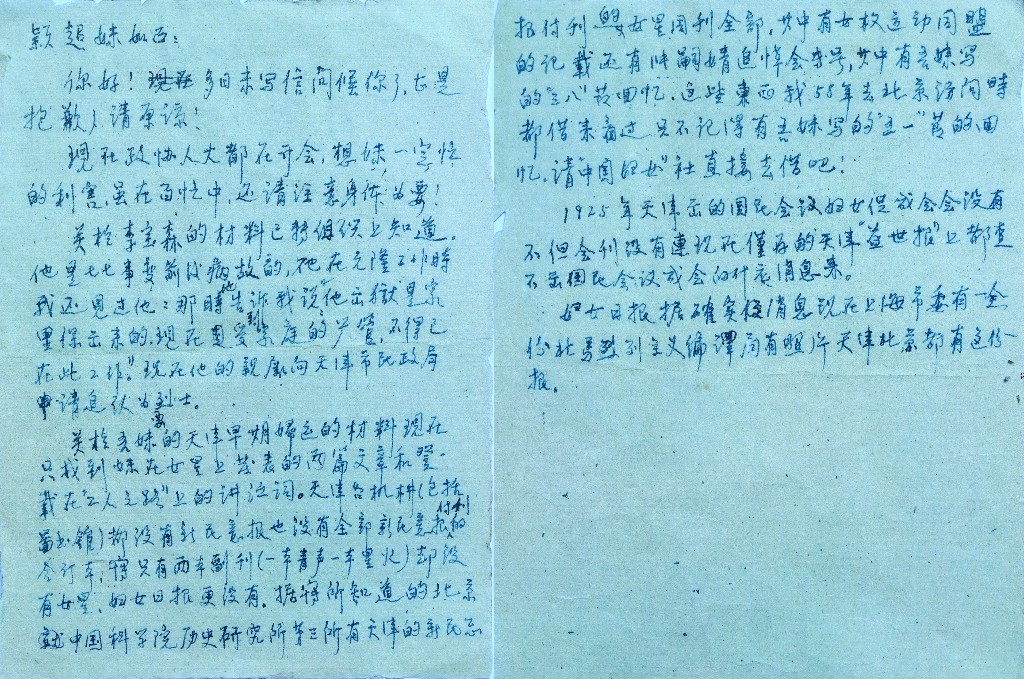 颖超妹如面：
你好！多日来写信问候你了，真是
抱歉，请原谅！
现在政协人大都在开会，想妹一定忙
的利害，虽在百忙中，还请注意身体为要！
关于李宝森的材料已转组织上知道。
他是七七事变前后病故的，他在元隆工作时
我还见过他：那时他告诉我说"他出狱是家
里保出来的，现在因受家庭的严管，不得已
在此工作"。现在他的亲属向天津市民政局
申请追认为烈士。
关于吾妹要的天津早期妇运的材料现在
只找到妹在女星上发表的两篇文章和登
载在"工人之路"上的讲演词。天津各机构（包括
图书馆）都没有新民意报也没有全部新民意报付刊的
合订本，只有两本副刊（一本青声一本星火）却没
有女星、妇女日报更没有。据所知道的北京
中国科学院历史研究所第三所有天津的新民意
报付刊的女星周刊全部，其中有女权运动同盟
的记载还有时嗣婧追悼会专号，其中有吾妹写
的"三八"节回忆。这些东西我58年去北京访问时
都借来看过只不记得有吾妹写的"五一"节的回
忆。请"中国妇女"社直接去借吧！
1925年天津出的国民会议妇女促成会会没有
不但会刊没有连现在仅存的天津"益世报"上都查
不出国民会议成会的什么消息来。
妇女日报据确实消息现在上海市委有一全
份北京马列主义编译局有照片天津北京都有这份
报。